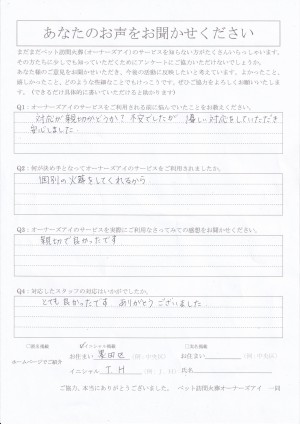 あなたのお声をお聞かせください
まだまだペット訪問火葬(オーナーズアイ)のサービスを知らない方がたくさんいらっしゃいます。
その方たちに少しでも知っていただくためにアンケートにご協力いただけないでしょうか。
あなた様のご意見をお聞かせいただき、今後の活動に反映したいと考えています。よかったこと、
嬉しかったこと、どのような些細なことでもけっこうです。ぜひご協力をよろしくお願いいたします。
(できるだけ具体的に書いていただけると助かります)
Q1：オーナーズアイのサービスをご利用される前に悩んでいたことをお教えください。
対応が親切かどうか？不安でしたが 優しい対応をしていただき
安心しました
Q2：何が決め手となってオーナーズアイのサービスをご利用されましたか。
個別の火葬をしてくれるから
Q3：オーナーズアイのサービスを実際にご利用なさってみての感想をお聞かせください。
親切で良かったです
Q4：対応したスタッフの対応はいかがでしたか。
とても良かったです ありがとうございました
□匿名掲載 ✓イニシャル掲載 □実名掲載
ホームページでご紹介
お住まい 墨田区 (例．中央区) お住まい (例．中央区)
イニシャル T．H (例．I．H) 氏名
ご協力、本当にありがとうございました。 ペット訪問火葬オーナーズアイ 一同